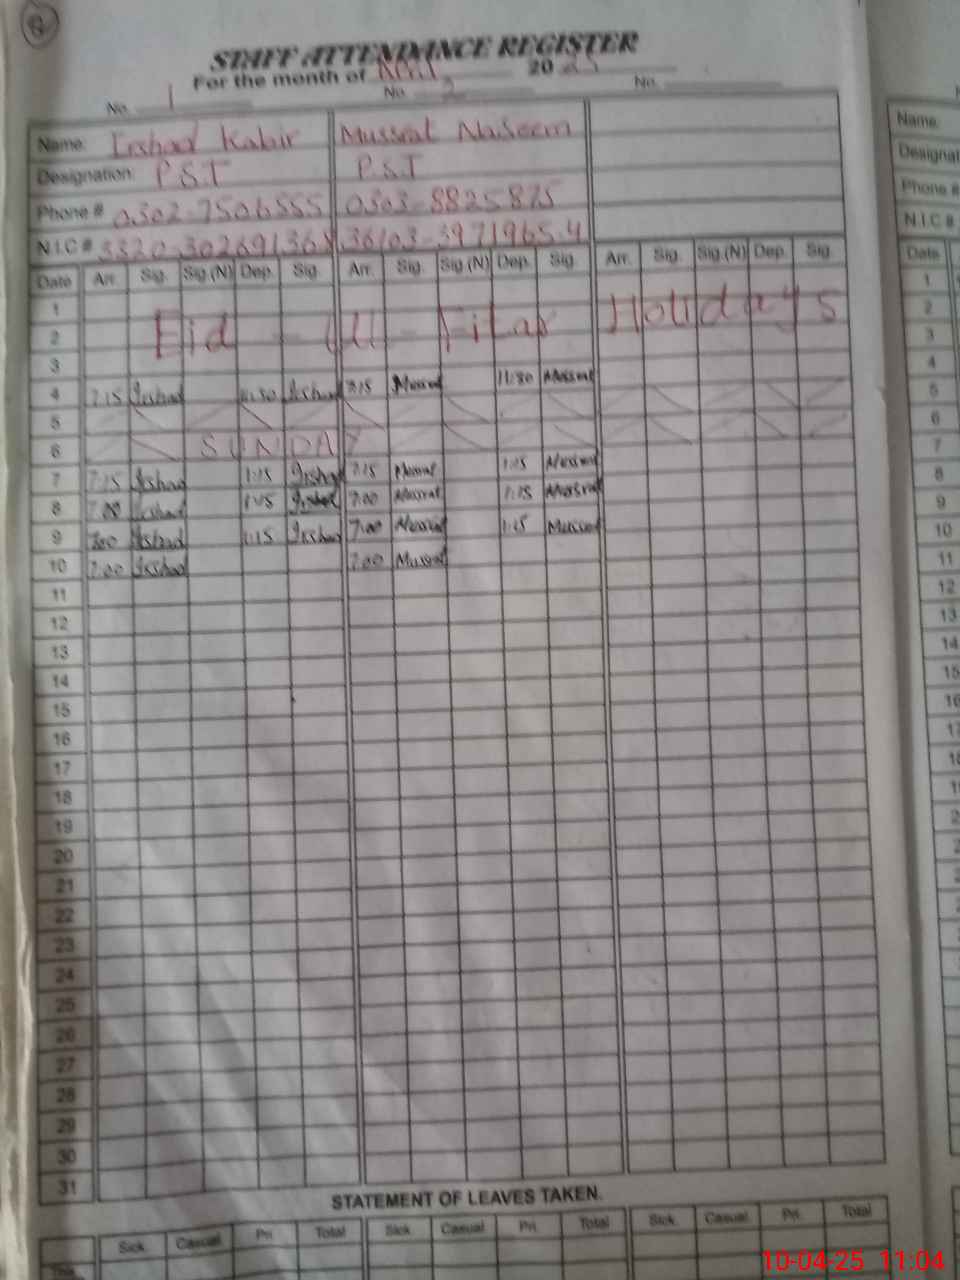 8
STAFF ATTENDANCE REGISTER
For the month of April 2025
No. 1 No. 2 No.
Name: Irshad Kabir Mussrat Naseem
Designation: P.S.T P.S.T
Phone # 0302-7506555 0303-8825875
N.I.C # 36103-3971965-4
Date Arr. Sig. Sig.(N) Dep. Sig. Arr. Sig. Sig.(N) Dep. Sig. Arr. Sig. Sig.(N) Dep. Sig.
1
2 Eid - Ul - Fitar Holidays
3
4 7:15 Irshad 11:30 Irshad 7:15 Mussrat 11:30 Mussrat
5
6 SUNDAY
7 7:15 Irshad 1:15 Irshad 7:15 Mussrat 1:15 Mussrat
8 7:00 Irshad 1:15 Irshad 7:00 Mussrat 1:15 Mussrat
9 7:00 Irshad 1:15 Irshad 7:00 Mussrat 1:15 Mussrat
10 7:00 Irshad 7:00 Mussrat
11
12
13
14
15
16
17
18
19
20
21
22
23
24
25
26
27
28
29
30
31
STATEMENT OF LEAVES TAKEN.
Sick Casual Pri. Total Sick Casual Pri. Total Sick Casual Pri. Total
Name:
Designat
Phone #
N.I.C #
Date
1
2
3
4
5
6
7
8
9
10
11
12
13
14
15
16
10-04-25 11:04